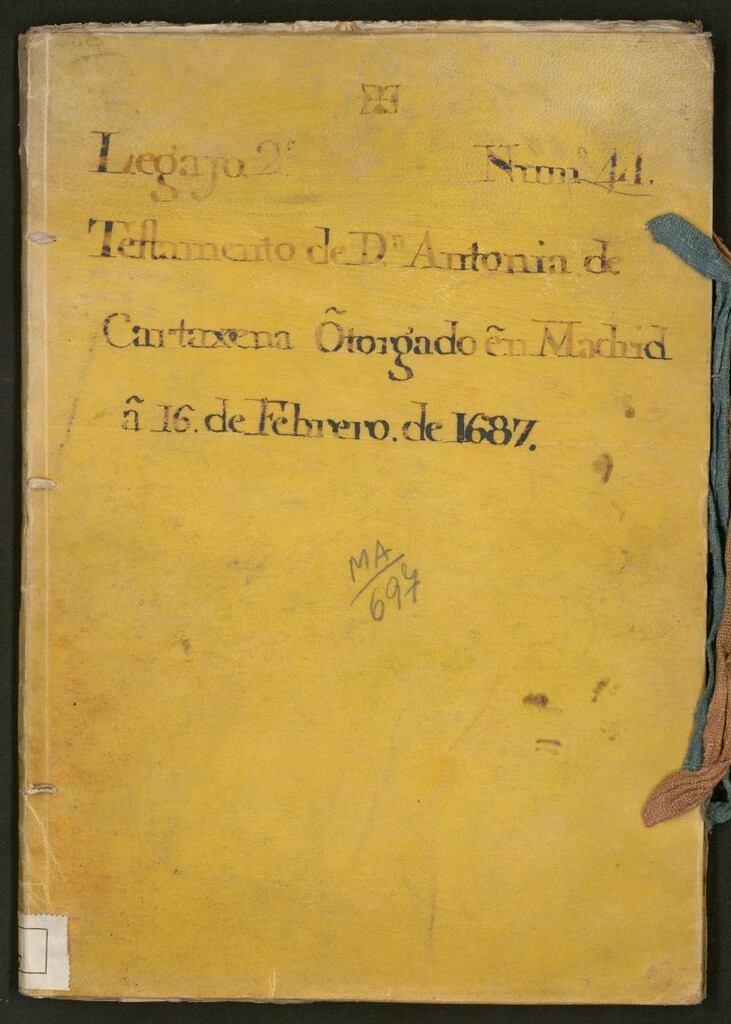 Legajo. 2º. Numº 41.
Testamento de D.ⁿ Antonia de
Cartaxena Õtorgado ẽn Madrid
ã 16. de Febrero. de 1687.
MA
697